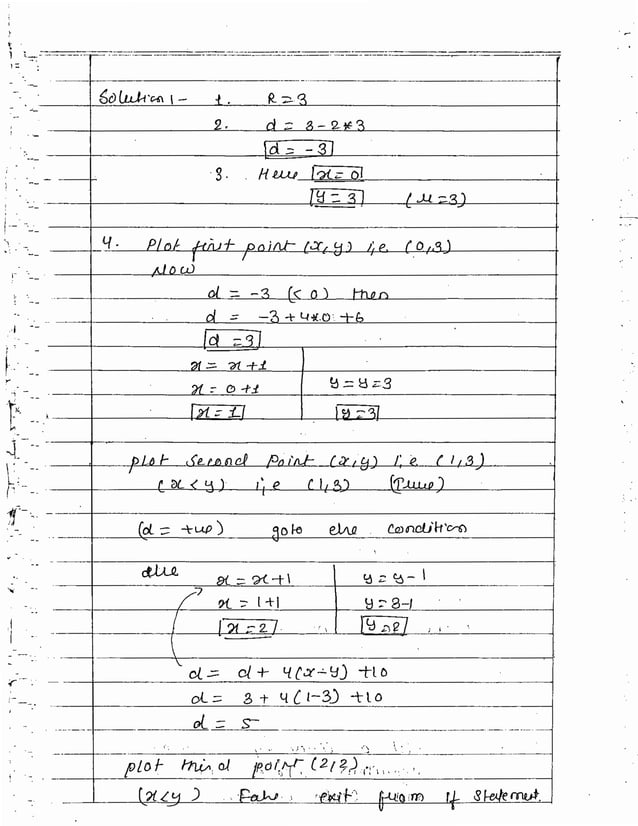 Solution :- 1. R = 3
2. d = 3 - 2*3
d = -3
3. Here x = 0
y = 3 (r = 3)
4. Plot first point (x, y) i,e (0,3)
Now
d = -3 (< 0) then
d = -3 + 4*0 + 6
d = 3
x = x+1
x = 0+1 y = y = 3
x = 1 y = 3
plot second point (x, y) i,e (1,3)
(x < y) i,e (1,3) (True)
(d = +ve) goto else condition
else x = x+1 y = y-1
x = 1+1 y = 3-1
x = 2 y = 2
d = d + 4(x-y) + 10
d = 3 + 4(1-3) + 10
d = 5
plot third point (2,2)
(x<y) False exit from if statement.